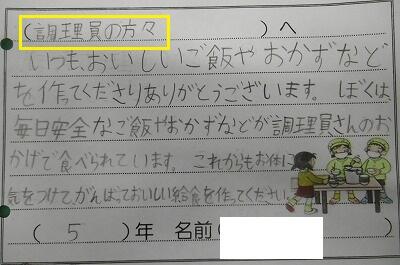 （調理員の方々）へ
いつも、おいしいご飯やおかずなど
を作ってくださりありがとうございます。ぼくは、
毎日安全なご飯やおかずなどが調理員さんのお
かげで食べられています。これからもお体に
気をつけて、がんばっておいしい給食を作ってください。
（５）年 名前（